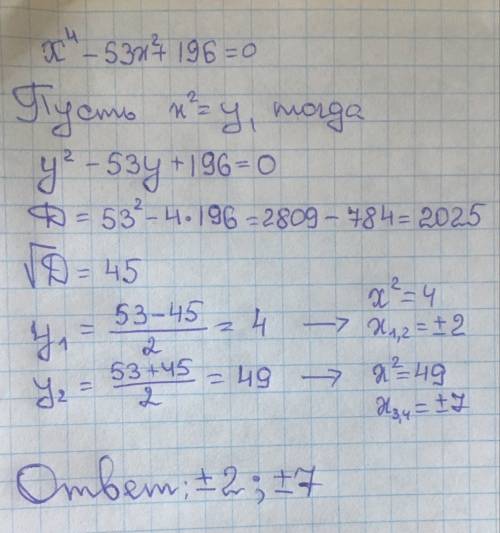 x⁴ − 53x² + 196 = 0
Пусть x² = y, тогда
y² − 53y + 196 = 0
D = 53² − 4·196 = 2809 − 784 = 2025
√D = 45
y₁ = (53 − 45)/2 = 4 → x² = 4
x₁,₂ = ±2
y₂ = (53 + 45)/2 = 49 → x² = 49
x₃,₄ = ±7
Ответ: ±2; ±7